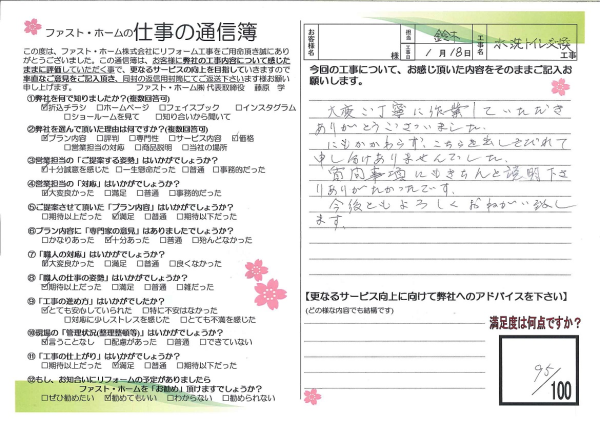 ファスト・ホームの仕事の通信簿
この度は、ファスト・ホーム株式会社にリフォーム工事をご用命頂き誠にあり
がとうございました。この通信簿は、お客様に弊社の工事内容について感じた
ままに評価していただく事で、更なるサービスの向上を目指していきますので
率直なご意見をご記入頂き、同封の返信用封筒にてご返送下さいます様お願い
申し上げます。 ファスト・ホーム㈱ 代表取締役 藤原 学
①弊社を何で知りましたか?(複数回答可)
☑折込チラシ □ホームページ □フェイスブック □インスタグラム
□ショールームを見て □知り合いから聞いて
②弊社を選んで頂いた理由は何ですか?(複数回答可)
☑プラン内容 □評判 □専門性 □サービス内容 ☑価格
□営業担当の対応 □商品説明 □当社の場所
③営業担当の「ご提案する姿勢」はいかがでしょうか?
☑十分誠意を感じた □一生懸命だった □普通 □事務的だった
④営業担当の「対応」はいかがでしょうか?
☑大変良かった □満足 □普通 □事務的だった
⑤ご提案させて頂いた「プラン内容」はいかがでしょうか?
□期待以上だった ☑満足 □普通 □期待以下だった
⑥プラン内容に「専門家の意見」はありましたでしょうか?
□かなりあった ☑十分あった □普通 □殆んどなかった
⑦「職人の対応」はいかがでしょうか?
☑大変良かった □満足 □普通 □良くなかった
⑧「職人の仕事の姿勢」はいかがでしょうか?
☑期待以上だった □満足 □普通 □雑だった
⑨「工事の進め方」はいかがでしたか?
☑とても安心していられた □特に不安はなかった
□対応に少しストレスを感じた □とても不満を感じた
⑩現場の「管理状況(整理整頓等)」はいかがでしょうか?
☑言うことなし □配慮があった □普通 □できていない
⑪「工事の仕上がり」はいかがでしたか?
□期待以上だった ☑満足 □普通 □期待以下だった
⑫もし、お知合いにリフォームの予定がありましたら
ファスト・ホームを「お勧め」頂けますでしょうか?
□ぜひ勧めたい ☑勧めてもいい □わからない □勧められない
お客様名 様 担当 鈴木 工事日 1月18日 工事名 水洗トイレ交換 工事
今回の工事について、お感じ頂いた内容をそのままご記入お
願いします。
大変ご丁寧に作業していただき
ありがとうございました。
にもかかわらず、こちらを
申し訳ありませんでした。
質問事項にもきちんと説明下さ
りありがたかったです。
今後ともよろしくおねがい致し
ます。
【更なるサービス向上に向けて弊社へのアドバイスを下さい】
(どの様な内容でも結構です)
満足度は何点ですか?
95
/100